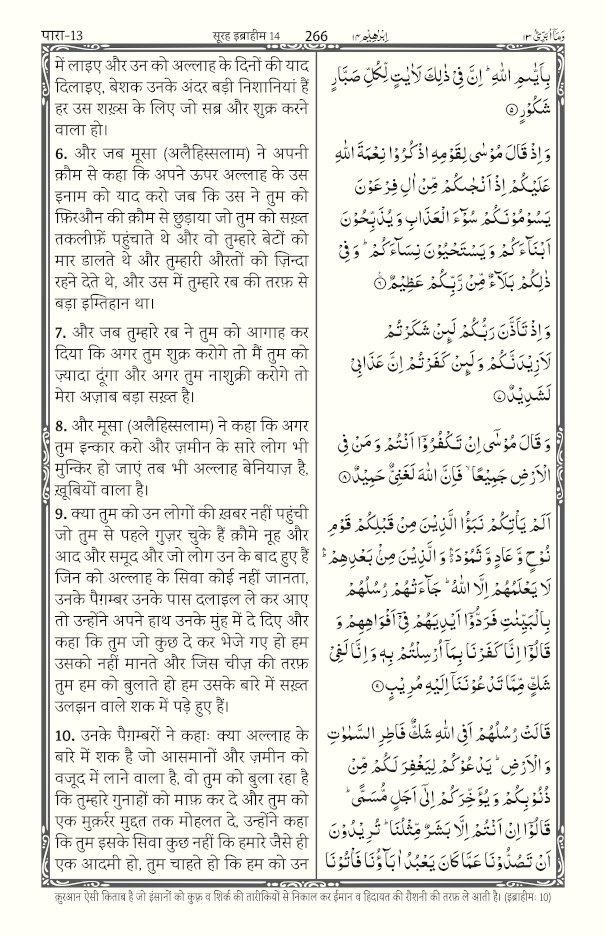 पारा-13
सूरह इब्राहीम 14
266
اِبْرٰهِيْم ١٤
وَمَآ اُبَرِّئُ ١٣
में लाइए और उन को अल्लाह के दिनों की याद
दिलाइए, बेशक उनके अंदर बड़ी निशानियां हैं
हर उस शख़्स के लिए जो सब्र और शुक्र करने
वाला हो।
6. और जब मूसा (अलैहिस्सलाम) ने अपनी
क़ौम से कहा कि अपने ऊपर अल्लाह के उस
इनाम को याद करो जब कि उस ने तुम को
फ़िरऔन की क़ौम से छुड़ाया जो तुम को सख़्त
तकलीफ़ें पहुंचाते थे और वो तुम्हारे बेटों को
मार डालते थे और तुम्हारी औरतों को ज़िन्दा
रहने देते थे, और उस में तुम्हारे रब की तरफ़ से
बड़ा इम्तिहान था।
7. और जब तुम्हारे रब ने तुम को आगाह कर
दिया कि अगर तुम शुक्र करोगे तो मैं तुम को
ज़्यादा दूंगा और अगर तुम नाशुक्री करोगे तो
मेरा अज़ाब बड़ा सख़्त है।
8. और मूसा (अलैहिस्सलाम) ने कहा कि अगर
तुम इन्कार करो और ज़मीन के सारे लोग भी
मुन्किर हो जाएं तब भी अल्लाह बेनियाज़ है,
ख़ूबियों वाला है।
9. क्या तुम को उन लोगों की ख़बर नहीं पहुंची
जो तुम से पहले गुज़र चुके हैं क़ौमे नूह और
आद और समूद और जो लोग उन के बाद हुए हैं
जिन को अल्लाह के सिवा कोई नहीं जानता,
उनके पैग़म्बर उनके पास दलाइल ले कर आए
तो उन्होंने अपने हाथ उनके मुंह में दे दिए और
कहा कि तुम जो कुछ दे कर भेजे गए हो हम
उसको नहीं मानते और जिस चीज़ की तरफ़
तुम हम को बुलाते हो हम उसके बारे में सख़्त
उलझन वाले शक में पड़े हुए हैं।
10. उनके पैग़म्बरों ने कहाः क्या अल्लाह के
बारे में शक है जो आसमानों और ज़मीन को
वजूद में लाने वाला है, वो तुम को बुला रहा है
कि तुम्हारे गुनाहों को माफ़ कर दे और तुम को
एक मुक़र्रर मुद्दत तक मोहलत दे, उन्होंने कहा
कि तुम इसके सिवा कुछ नहीं कि हमारे जैसे ही
एक आदमी हो, तुम चाहते हो कि हम को उन
بِاَيّٰىمِ اللّٰهِ ؕ اِنَّ فِيْ ذٰلِكَ لَاٰيٰتٍ لِّكُلِّ صَبَّارٍ
شَكُوْرٍ ۝٥
وَ اِذْ قَالَ مُوْسٰى لِقَوْمِهِ اذْكُرُوْا نِعْمَةَ اللّٰهِ
عَلَيْكُمْ اِذْ اَنْجٰىكُمْ مِّنْ اٰلِ فِرْعَوْنَ
يَسُوْمُوْنَكُمْ سُوْٓءَ الْعَذَابِ وَ يُذَبِّحُوْنَ
اَبْنَآءَكُمْ وَ يَسْتَحْيُوْنَ نِسَآءَكُمْ ؕ وَ فِيْ
ذٰلِكُمْ بَلَآءٌ مِّنْ رَّبِّكُمْ عَظِيْمٌ ۝٦
وَ اِذْ تَاَذَّنَ رَبُّكُمْ لَىِٕنْ شَكَرْتُمْ
لَاَزِيْدَنَّكُمْ وَ لَىِٕنْ كَفَرْتُمْ اِنَّ عَذَابِيْ
لَشَدِيْدٌ ۝٧
وَ قَالَ مُوْسٰٓى اِنْ تَكْفُرُوْٓا اَنْتُمْ وَ مَنْ فِي
الْاَرْضِ جَمِيْعًا ۙ فَاِنَّ اللّٰهَ لَغَنِيٌّ حَمِيْدٌ ۝٨
اَلَمْ يَاْتِكُمْ نَبَؤُا الَّذِيْنَ مِنْ قَبْلِكُمْ قَوْمِ
نُوْحٍ وَّ عَادٍ وَّ ثَمُوْدَ ۛؕ وَ الَّذِيْنَ مِنْۢ بَعْدِهِمْ ۛؕ
لَا يَعْلَمُهُمْ اِلَّا اللّٰهُ ؕ جَآءَتْهُمْ رُسُلُهُمْ
بِالْبَيِّنٰتِ فَرَدُّوْٓا اَيْدِيَهُمْ فِيْٓ اَفْوَاهِهِمْ وَ
قَالُوْٓا اِنَّا كَفَرْنَا بِمَآ اُرْسِلْتُمْ بِهٖ وَ اِنَّا لَفِيْ
شَكٍّ مِّمَّا تَدْعُوْنَنَآ اِلَيْهِ مُرِيْبٍ ۝٩
قَالَتْ رُسُلُهُمْ اَفِي اللّٰهِ شَكٌّ فَاطِرِ السَّمٰوٰتِ
وَ الْاَرْضِ ؕ يَدْعُوْكُمْ لِيَغْفِرَ لَكُمْ مِّنْ
ذُنُوْبِكُمْ وَ يُؤَخِّرَكُمْ اِلٰٓى اَجَلٍ مُّسَمًّى ؕ
قَالُوْٓا اِنْ اَنْتُمْ اِلَّا بَشَرٌ مِّثْلُنَا ؕ تُرِيْدُوْنَ
اَنْ تَصُدُّوْنَا عَمَّا كَانَ يَعْبُدُ اٰبَآؤُنَا فَاْتُوْنَا
क़ुरआन ऐसी किताब है जो इंसानों को कुफ़्र व शिर्क की तारीकियों से निकाल कर ईमान व हिदायत की रौशनी की तरफ़ ले आती है। (इब्राहीमः 10)